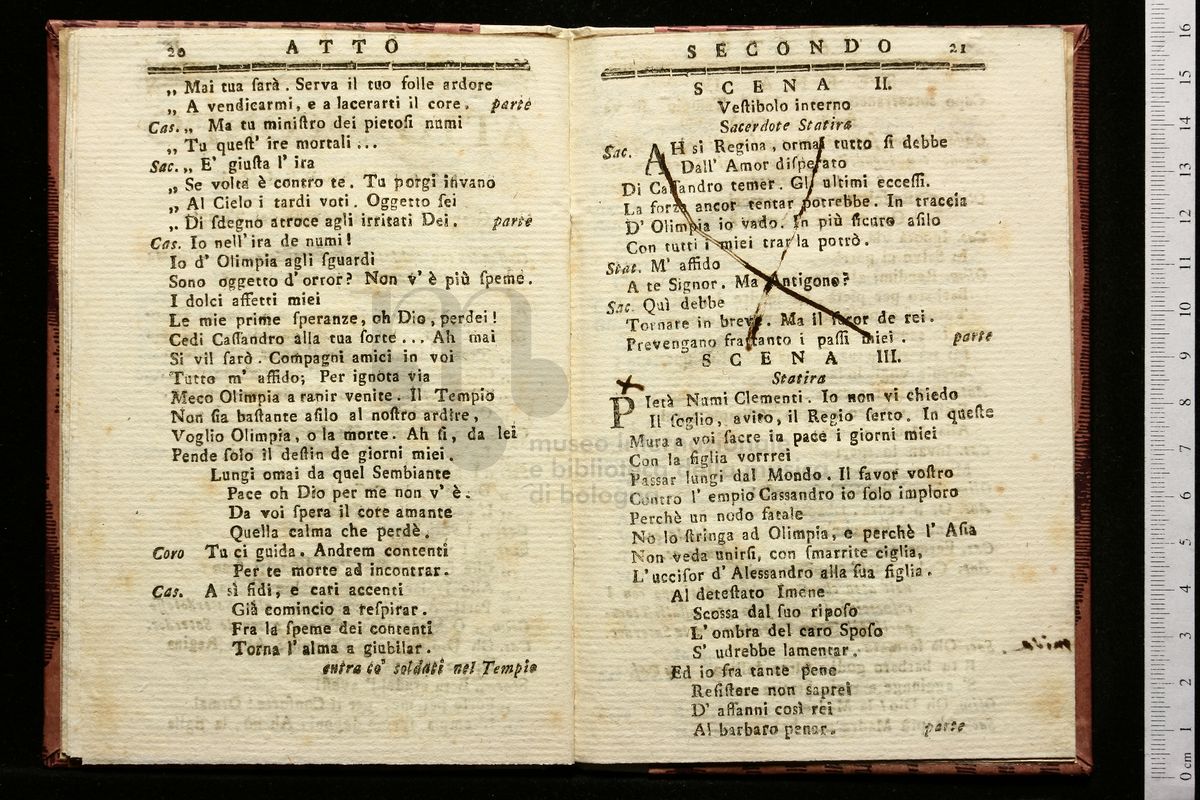 20 ATTO
„ Mai tua ſarà. Serva il tuo folle ardore
„ A vendicarmi, e a lacerarti il core. parte
Cas. „ Ma tu miniſtro dei pietoſi numi
„ Tu queſt' ire mortali ...
Sac. „ E' giuſta l' ira
„ Se volta è contro te. Tu porgi invano
„ Al Cielo i tardi voti. Oggetto ſei
„ Di ſdegno atroce agli irritati Dei. parte
Cas. Io nell'ira de numi!
Io d' Olimpia agli ſguardi
Sono oggetto d'orror? Non v' è più ſpeme.
I dolci affetti miei
Le mie prime ſperanze, oh Dio, perdei!
Cedi Caſſandro alla tua ſorte ... Ah mai
Si vil ſarò. Compagni amici in voi
Tutto m' affido; Per ignota via
Meco Olimpia a rapir venite. Il Tempio
Non ſia baſtante aſilo al noſtro ardire,
Voglio Olimpia, o la morte. Ah ſi, da lei
Pende ſolo il deſtin de giorni miei.
Lungi omai da quel Sembiante
Pace oh Dio per me non v' è.
Da voi ſpera il core amante
Quella calma che perdè.
Coro Tu ci guida. Andrem contenti
Per te morte ad incontrar.
Cas. A sì fidi, e cari accenti
Già comincio a reſpirar.
Fra la ſpeme dei contenti
Torna l' alma a giubilar.
entra co' soldati nel Tempio
SECONDO 21
SCENA II.
Veſtibolo interno
Sacerdote Statira
Sac. AH sì Regina, ormai tutto ſi debbe
Dall' Amor diſperato
Di Caſſandro temer. Gli ultimi ecceſſi.
La forza ancor tentar potrebbe. In traccia
D' Olimpia io vado. In più ſicuro aſilo
Con tutti i miei trar la potrò.
Stat. M' affido
A te Signor. Ma Antigono?
Sac. Quì debbe
Tornare in breve. Ma il furor de rei.
Prevengano frattanto i paſſi miei. parte
SCENA III.
Statira
PIetà Numi Clementi. Io non vi chiedo
Il ſoglio, avito, il Regio ſerto. In queſte
Mura a voi ſacre in pace i giorni miei
Con la figlia vorrrei
Paſſar lungi dal Mondo. Il favor voſtro
Contro l' empio Cassandro io ſolo imploro
Perchè un nodo fatale
No lo ſtringa ad Olimpia, e perchè l' Aſia
Non veda unirſi, con ſmarrite ciglia,
L'ucciſor d' Aleſſandro alla ſua figlia.
Al deteſtato Imene
Scossa dal ſuo ripoſo
L' ombra del caro Spoſo
S' udrebbe lamentar.
Ed io fra tante pene
Reſiſtere non saprei
D' affanni così rei
Al barbaro penar. parte
museo
e biblioteca
di bologna
0 cm 1 2 3 4 5 6 7 8 9 10 11 12 13 14 15 16